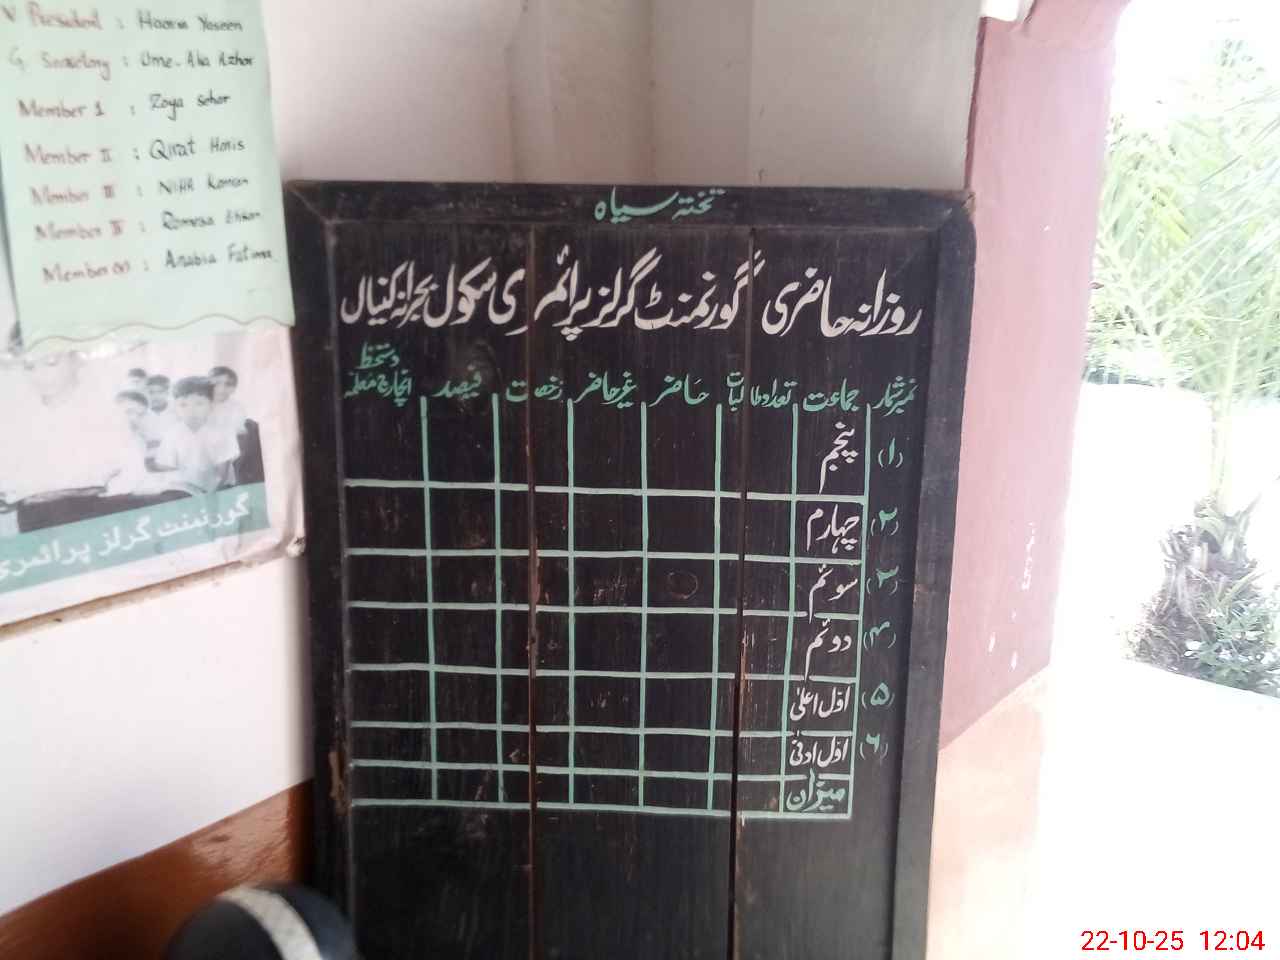 V. President : Haarm Yaseen
G. Secretory : Ume-Aba Azhar
Member 1 : Zoya Sehar
Member II : Qirat Haris
Member III :
Member IV : Romesa
Member : Anabia Fatima
گورنمنٹ گرلز پرائمری
تختہ سیاہ
روزانہ حاضری گورنمنٹ گرلز پرائمری سکول بحرانہ کنیال
نمبر شمار جماعت تعداد طالبات حاضر غیر حاضر رخصت فیصد دستخط انچارج معلمہ
(۱) پنجم
(۲) چہارم
(۳) سوئم
(۴) دوئم
(۵) اوّل اعلیٰ
(۶) اوّل ادنیٰ
میزان
22-10-25 12:04